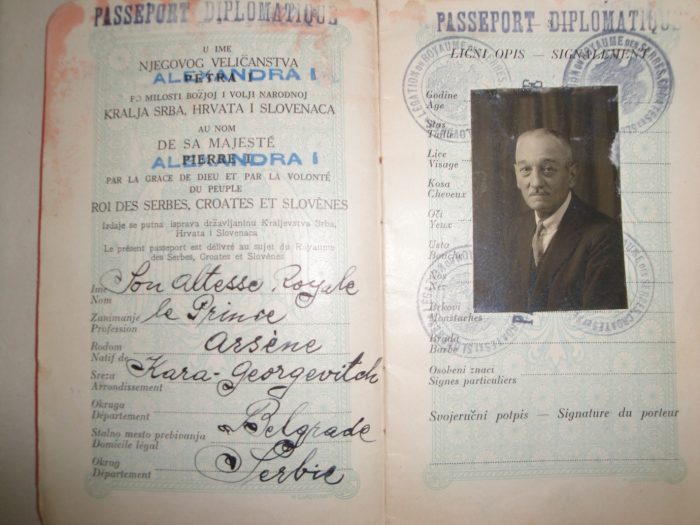 PASSEPORT DIPLOMATIQUE
U IME
NJEGOVOG VELIČANSTVA
PETRA I
ALEXANDRA I
PO MILOSTI BOŽJOJ I VOLJI NARODNOJ
KRALJA SRBA, HRVATA I SLOVENACA
AU NOM
DE SA MAJESTÉ
PIERRE I
ALEXANDRA I
PAR LA GRACE DE DIEU ET PAR LA VOLONTÉ
DU PEUPLE
ROI DES SERBES, CROATES ET SLOVÈNES
Izdaje se putna isprava državljaninu Kraljevstva Srba,
Hrvata i Slovenaca
Le présent passeport est délivré au sujet du Royaume
des Serbes, Croates et Slovènes
Ime Son Altesse Royale
Nom
Zanimanje le Prince
Profession
Rodom Arsène
Natif de
Sreza Kara-Georgevitch
Arrondissement
Okruga
Département
Stalno mesto prebivanja Belgrade
Domicile légal
Okrug Serbie
Département
PASSEPORT DIPLOMATIQUE
LIČNI OPIS — SIGNALEMENT
Godine
Age
Stas
Taille
Lice
Visage
Kosa
Cheveux
Oči
Yeux
Usta
Bouche
Nos
Nez
Brkovi
Moustaches
Brada
Barbe
Osobeni znaci
Signes particuliers
Svojeručni potpis — Signature du porteur